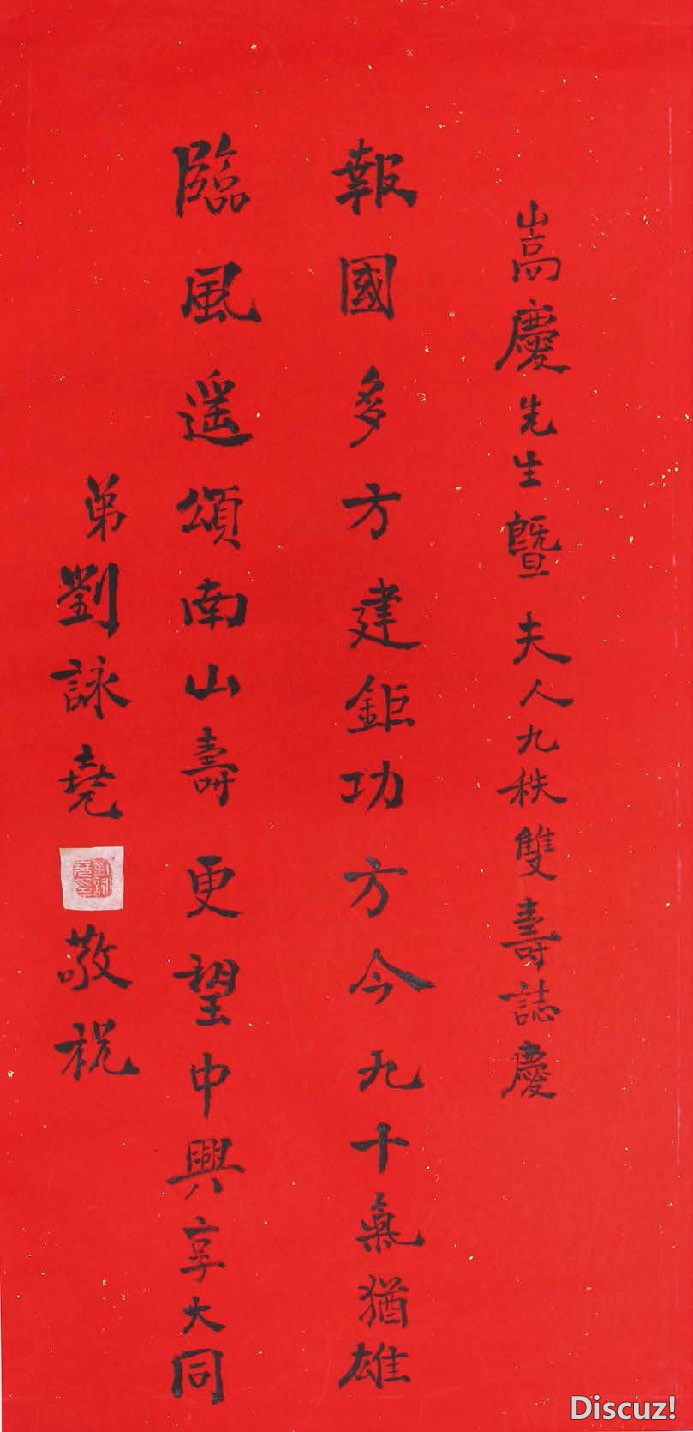 嵩慶先生暨夫人九秩雙壽誌慶
報國多方建鉅功方今九十氣猶雄
臨風遥頌南山壽更望中興享大同
弟劉詠堯敬祝
Discuz!